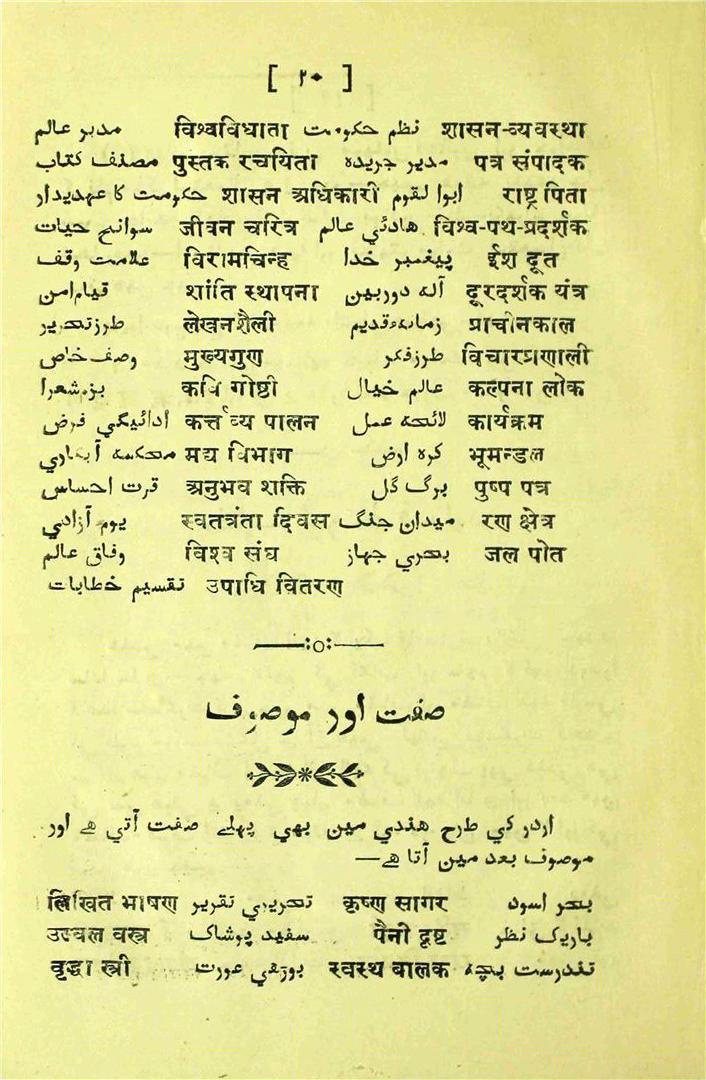 [ ۲۰ ]
शासन-व्यवस्था نظم حکومت विश्वविधाता مدبر عالم
पत्र संपादक مدیر جریدہ पुस्तक रचयिता مصنف کتاب
राष्ट्र पिता ابوا لقوم शासन अधिकारी حکومت کا عہدیدار
विश्व-पथ-प्रदर्शक ھادئي عالم जीवन चरित्र سوانح حیات
ईश दूत پیغمبر خدا विरामचिन्ह علامت وقف
दूरदर्शक यंत्र آلہ دوربین शांति स्थापना قیام امن
प्राचीनकाल زمانہ قدیم लेखनशैली طرز تحریر
विचारप्रणाली طرز فکر मुख्यगुण وصف خاص
कल्पना लोक عالم خیال कवि गोष्ठी بزم شعرا
कार्यक्रम لائحہ عمل कर्त्तव्य पालन ادائیگي فرض
भूमन्डल کرہ ارض मद्य विभाग محکمہ آبکاري
पुष्प पत्र برگ گل अनुभव शक्ति قوت احساس
रण क्षेत्र میدان جنگ स्वतत्रंता दिवस یوم آزادي
जल पोत بحري جہاز विश्व संघ وفاق عالم
उपाधि वितरण تقسیم خطابات
صفت اور موصوف
اردو کي طرح ھندي مین بھي پہلے صفت آتي ھے اور
موصوف بعد مین آتا ھے—
بحر اسود कृष्ण सागर تحریري تقریر लिखित भाषण
باریک نظر पैनी दृष्ट سفید پوشاک उज्वल वस्त्र
تندرست بچہ स्वस्थ बालक بوڑھي عورت वृद्धा स्त्री